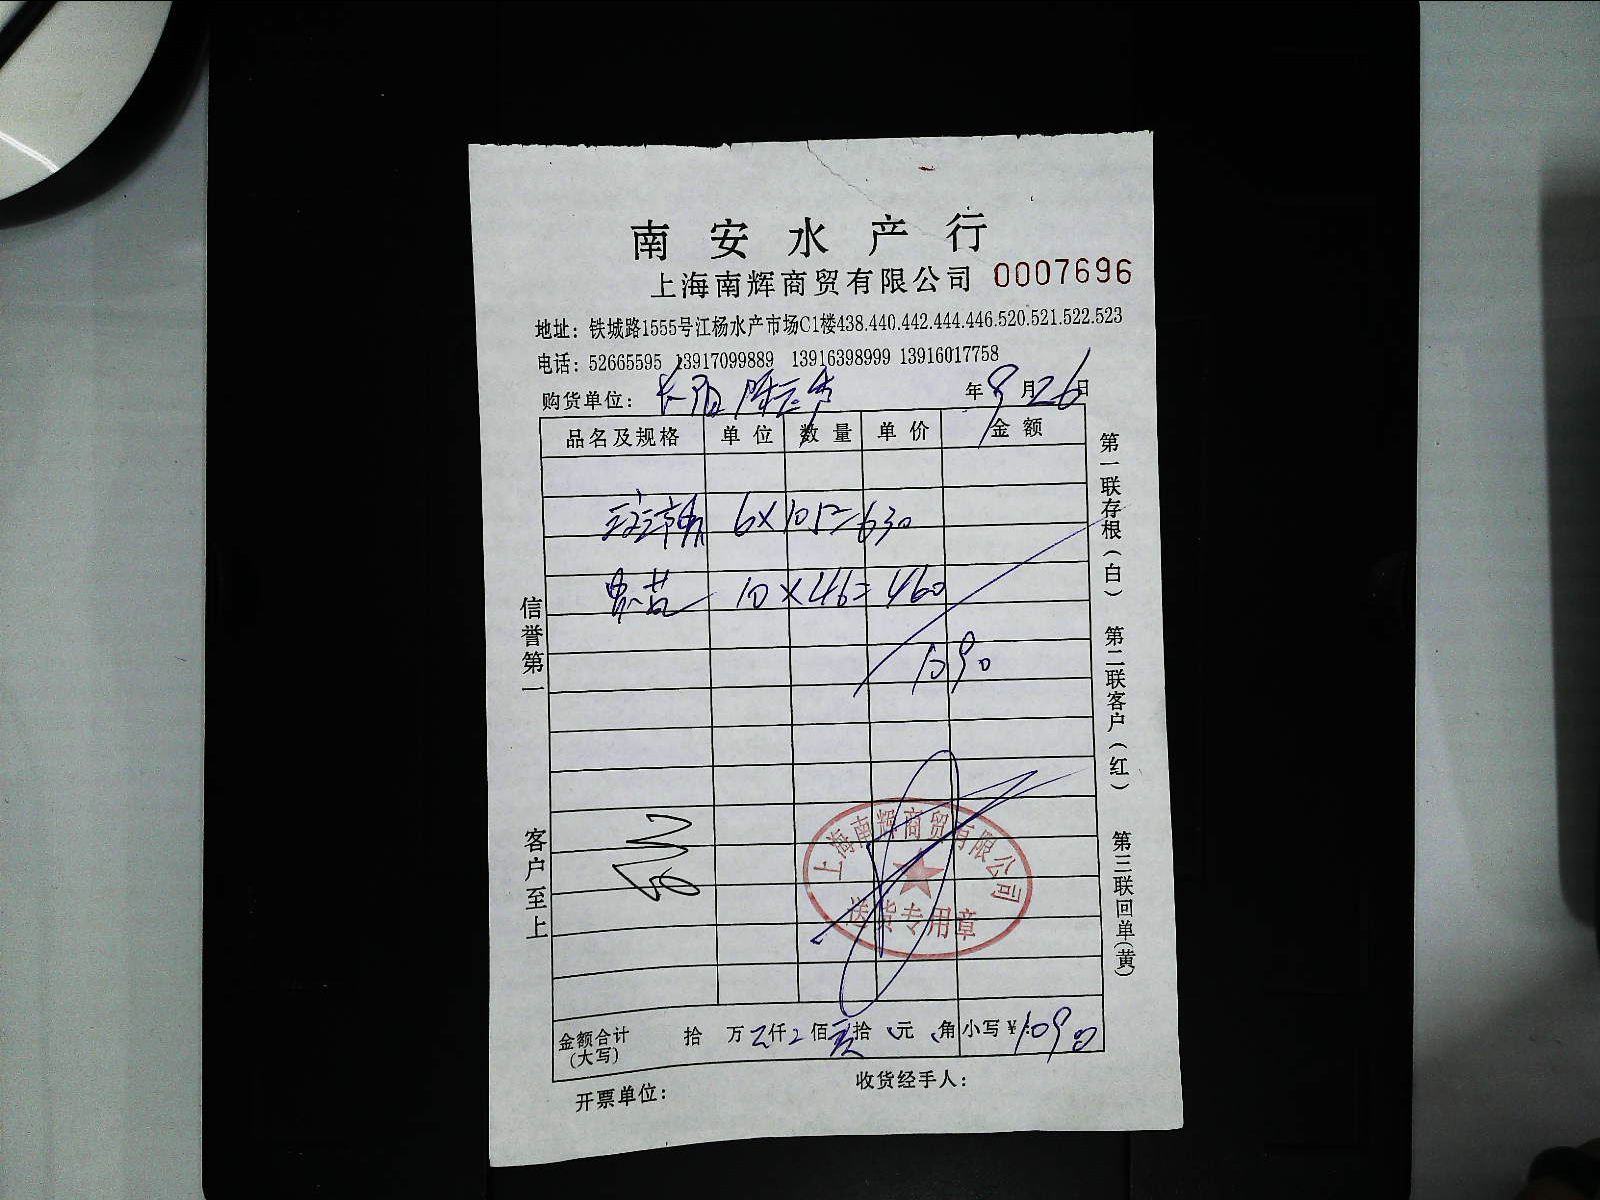 南安水产行
上海南辉商贸有限公司 0007696
地址：铁城路1555号江杨水产市场C1楼438.440.442.444.446.520.521.522.523
电话：52665595 13917099889 13916398999 13916017758
购货单位： 年 9 月 26 日
品名及规格 单位 数量 单价 金额
6×105=630
10×46=460
1090
信誉第一
客户至上
第一联存根（白）
第二联客户（红）
第三联回单（黄）
上海南辉商贸有限公司
送货专用章
金额合计（大写） 拾 万 仟 佰 拾 元 角 小写￥1090
开票单位：
收货经手人：